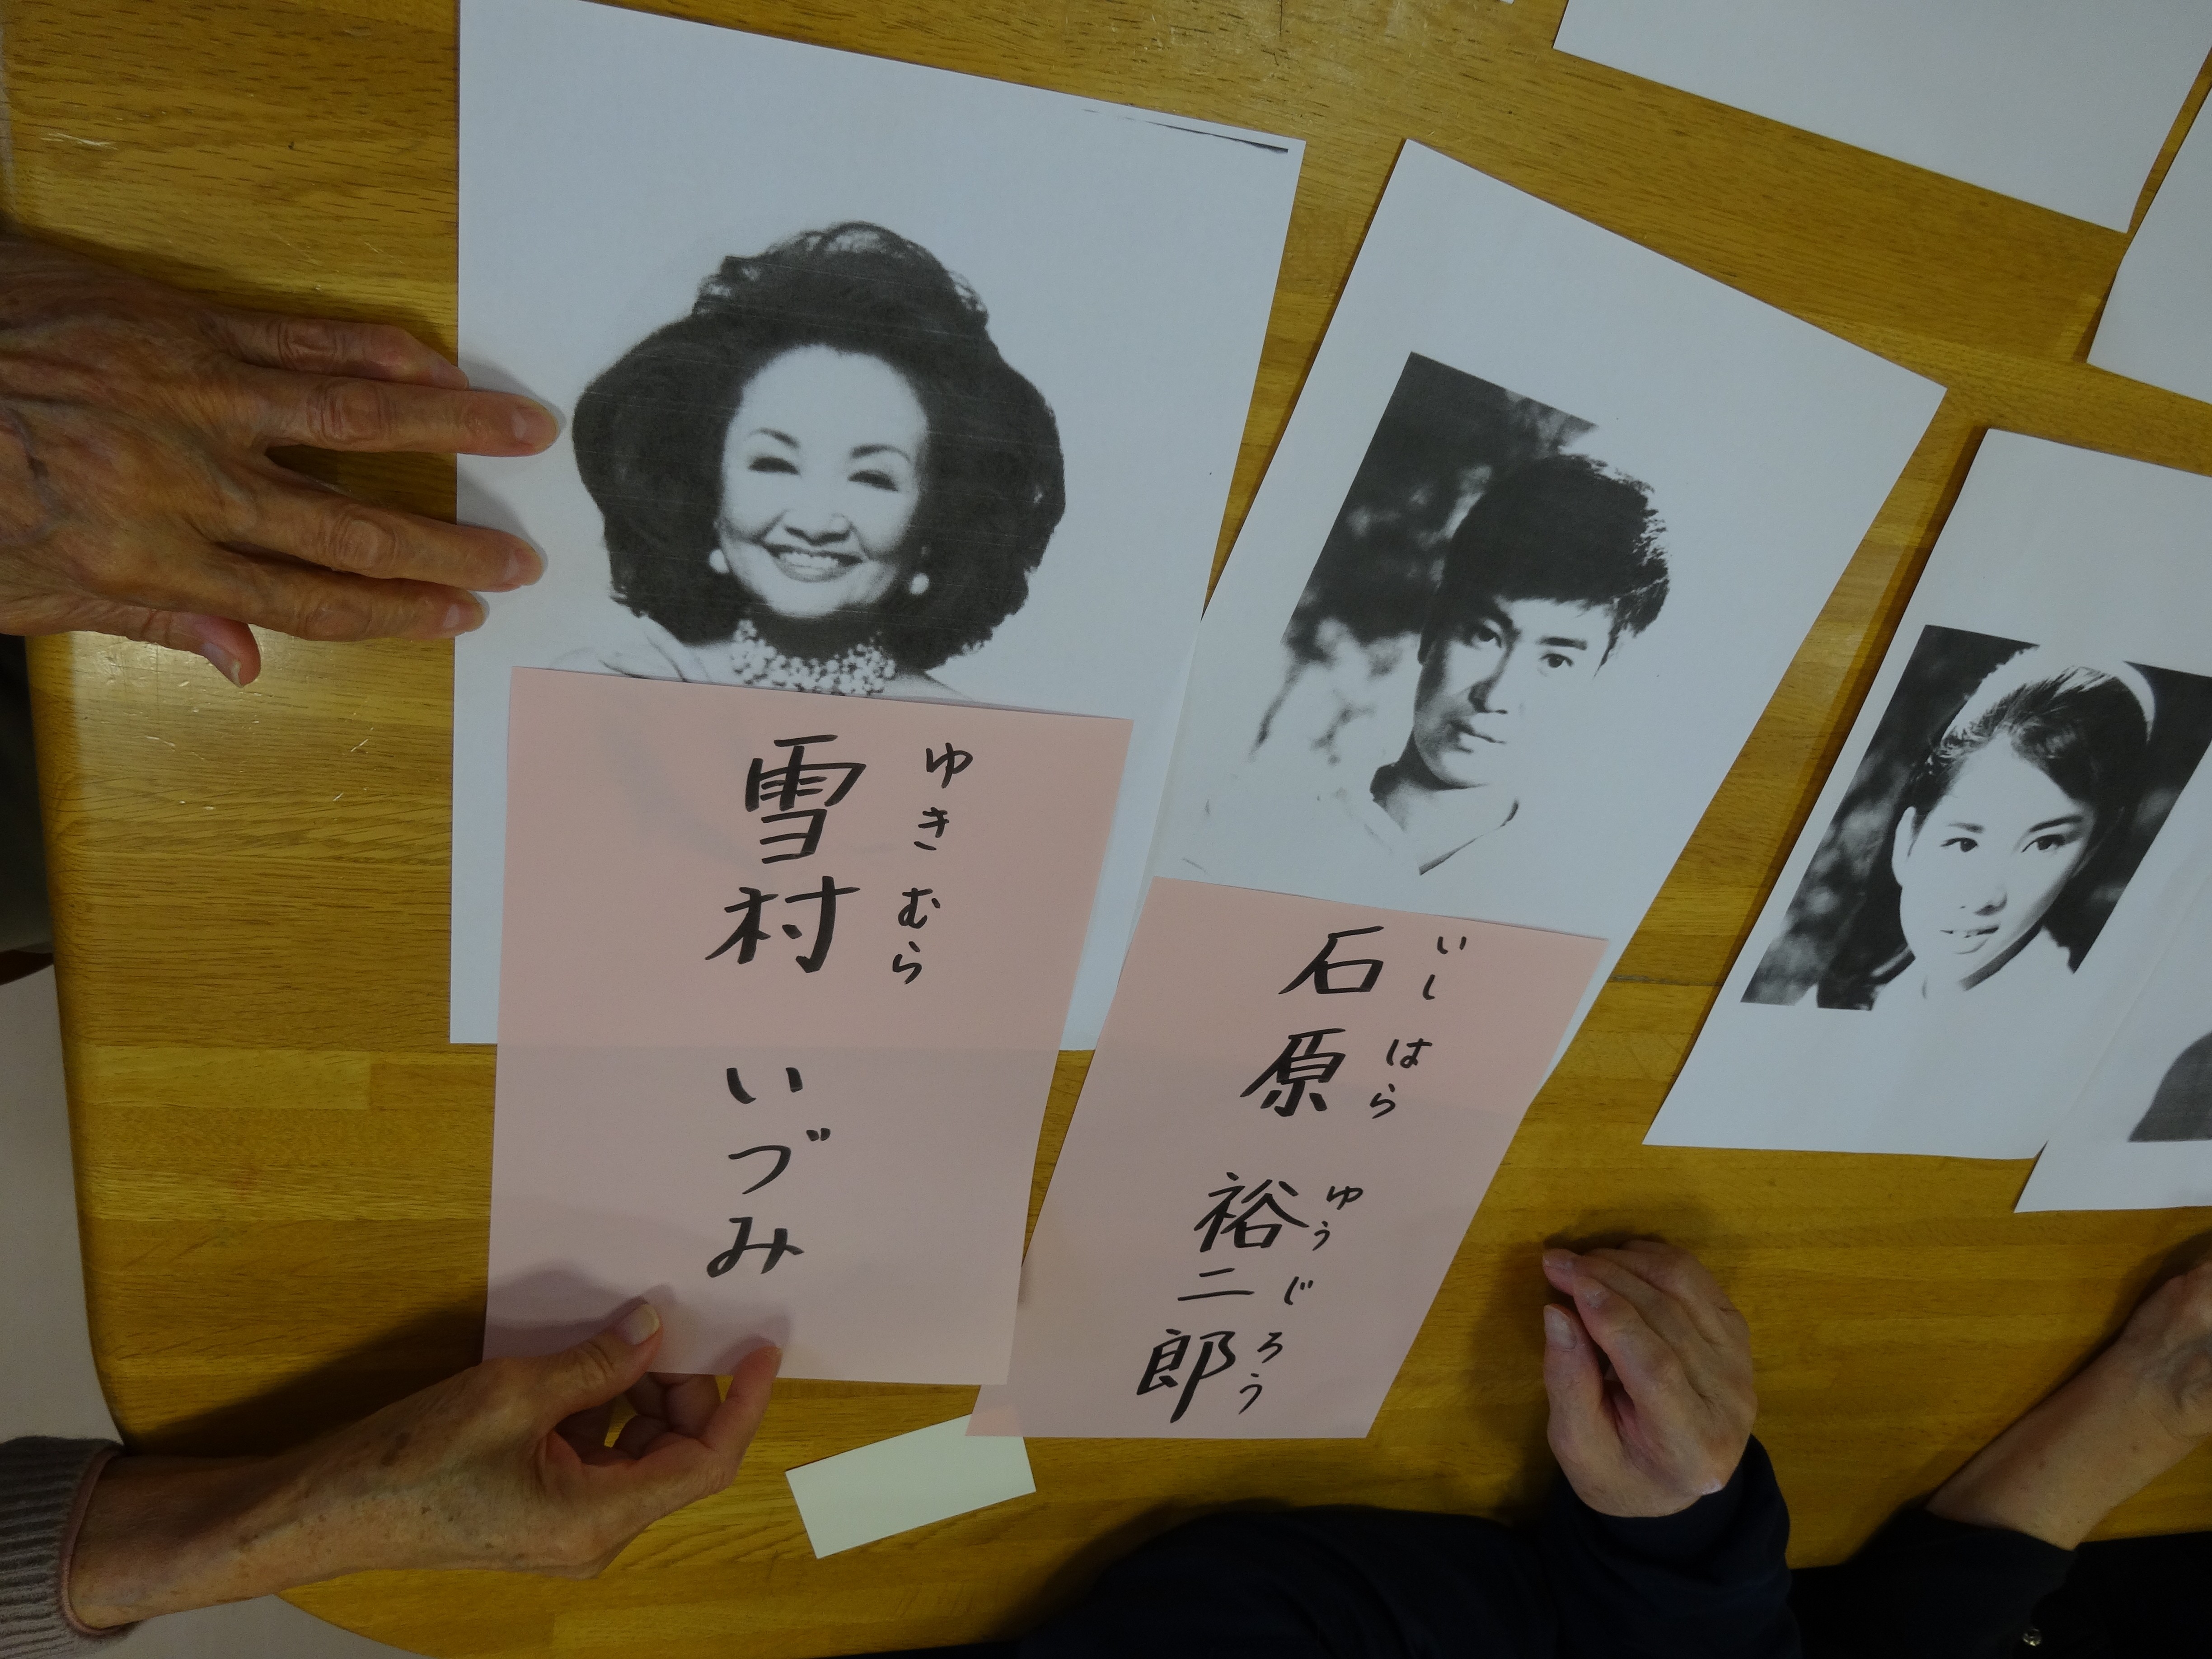 雪村 いづみ
ゆきむら
石原 裕二郎
いしはら ゆうじろう